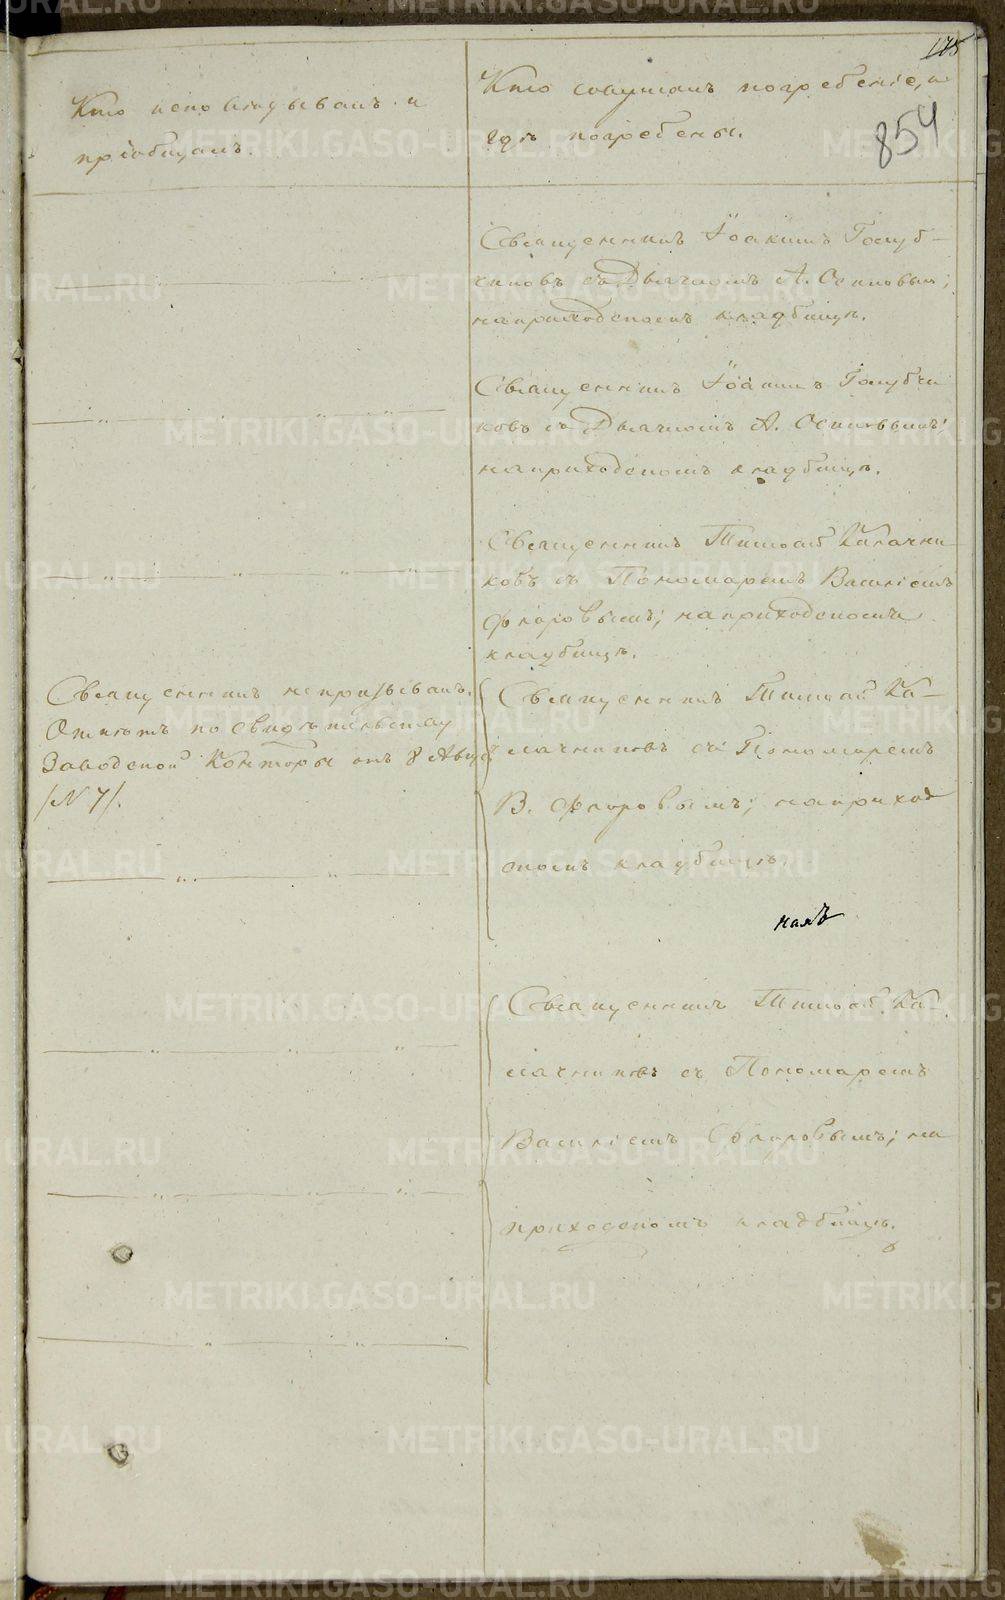 175
854
Кто исповѣдывалъ и
пріобщалъ.
Кто совершалъ погребеніе, и
гдѣ погребены.
Священникъ Іоакимъ Голуб-
чиковъ съ Дьячкомъ А. Осиповым;
на приходскомъ кладбищѣ.
Священникъ Іоакимъ Голубчи
ковъ съ Дьячкомъ А. Осиповымъ;
на приходскомъ кладбищѣ.
Священникъ Тимофей Калачни
ковъ съ Пономаремъ Василіемъ
Флоровымъ; на приходскомъ
кладбищѣ.
Священникъ не призыванъ.
Отпѣтъ по свидѣтельству
Заводской Конторы отъ 8 Авгус
/№ 7/.
Священникъ Тимофей Ка-
лачниковъ съ Пономаремъ
В. Флоровымъ; на приход
скомъ кладбищѣ.
Священникъ Тимофей Ка-
лачниковъ съ Пономаремъ
Василіемъ Флоровымъ; на
приходскомъ кладбищѣ.
METRIKI.GASO-URAL.RU